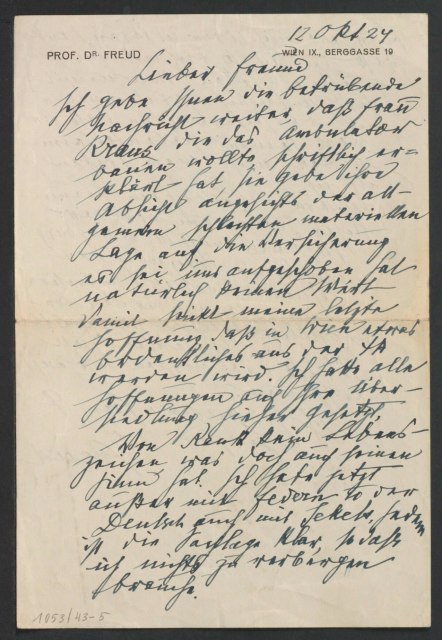 12 Okt 24
PROF. DR. FREUD
WIEN IX., BERGGASSE 19
Lieber Freund
Ich gebe Ihnen die betrübende
Nachricht weiter, daß Frau
Kraus, die das Ambulator
bauen wollte, schriftlich er-
klärt hat, sie gebe ihre
Absicht angesichts der all-
gemein schlechten materiellen
Lage auf. die Versicherung
es sei nur aufgeschoben hat
natürlich keinen Wert
Damit sinkt meine letzte
Hoffnung, daß in Wien etwas
Ordentliches aus der ΨA
werden wird. Ich hatte alle
Hoffnungen auf Ihre Über-
siedlung hieher gesetzt.
Von Rank kein Lebens-
zeichen was doch auch seinen
Sinn hat. Ich habe jetzt
außer mit Federn
Deutsch auch mit Jekels
ist die Sachlage klar, so daß
ich nichts zu verbergen
brauche.
1053/43-5